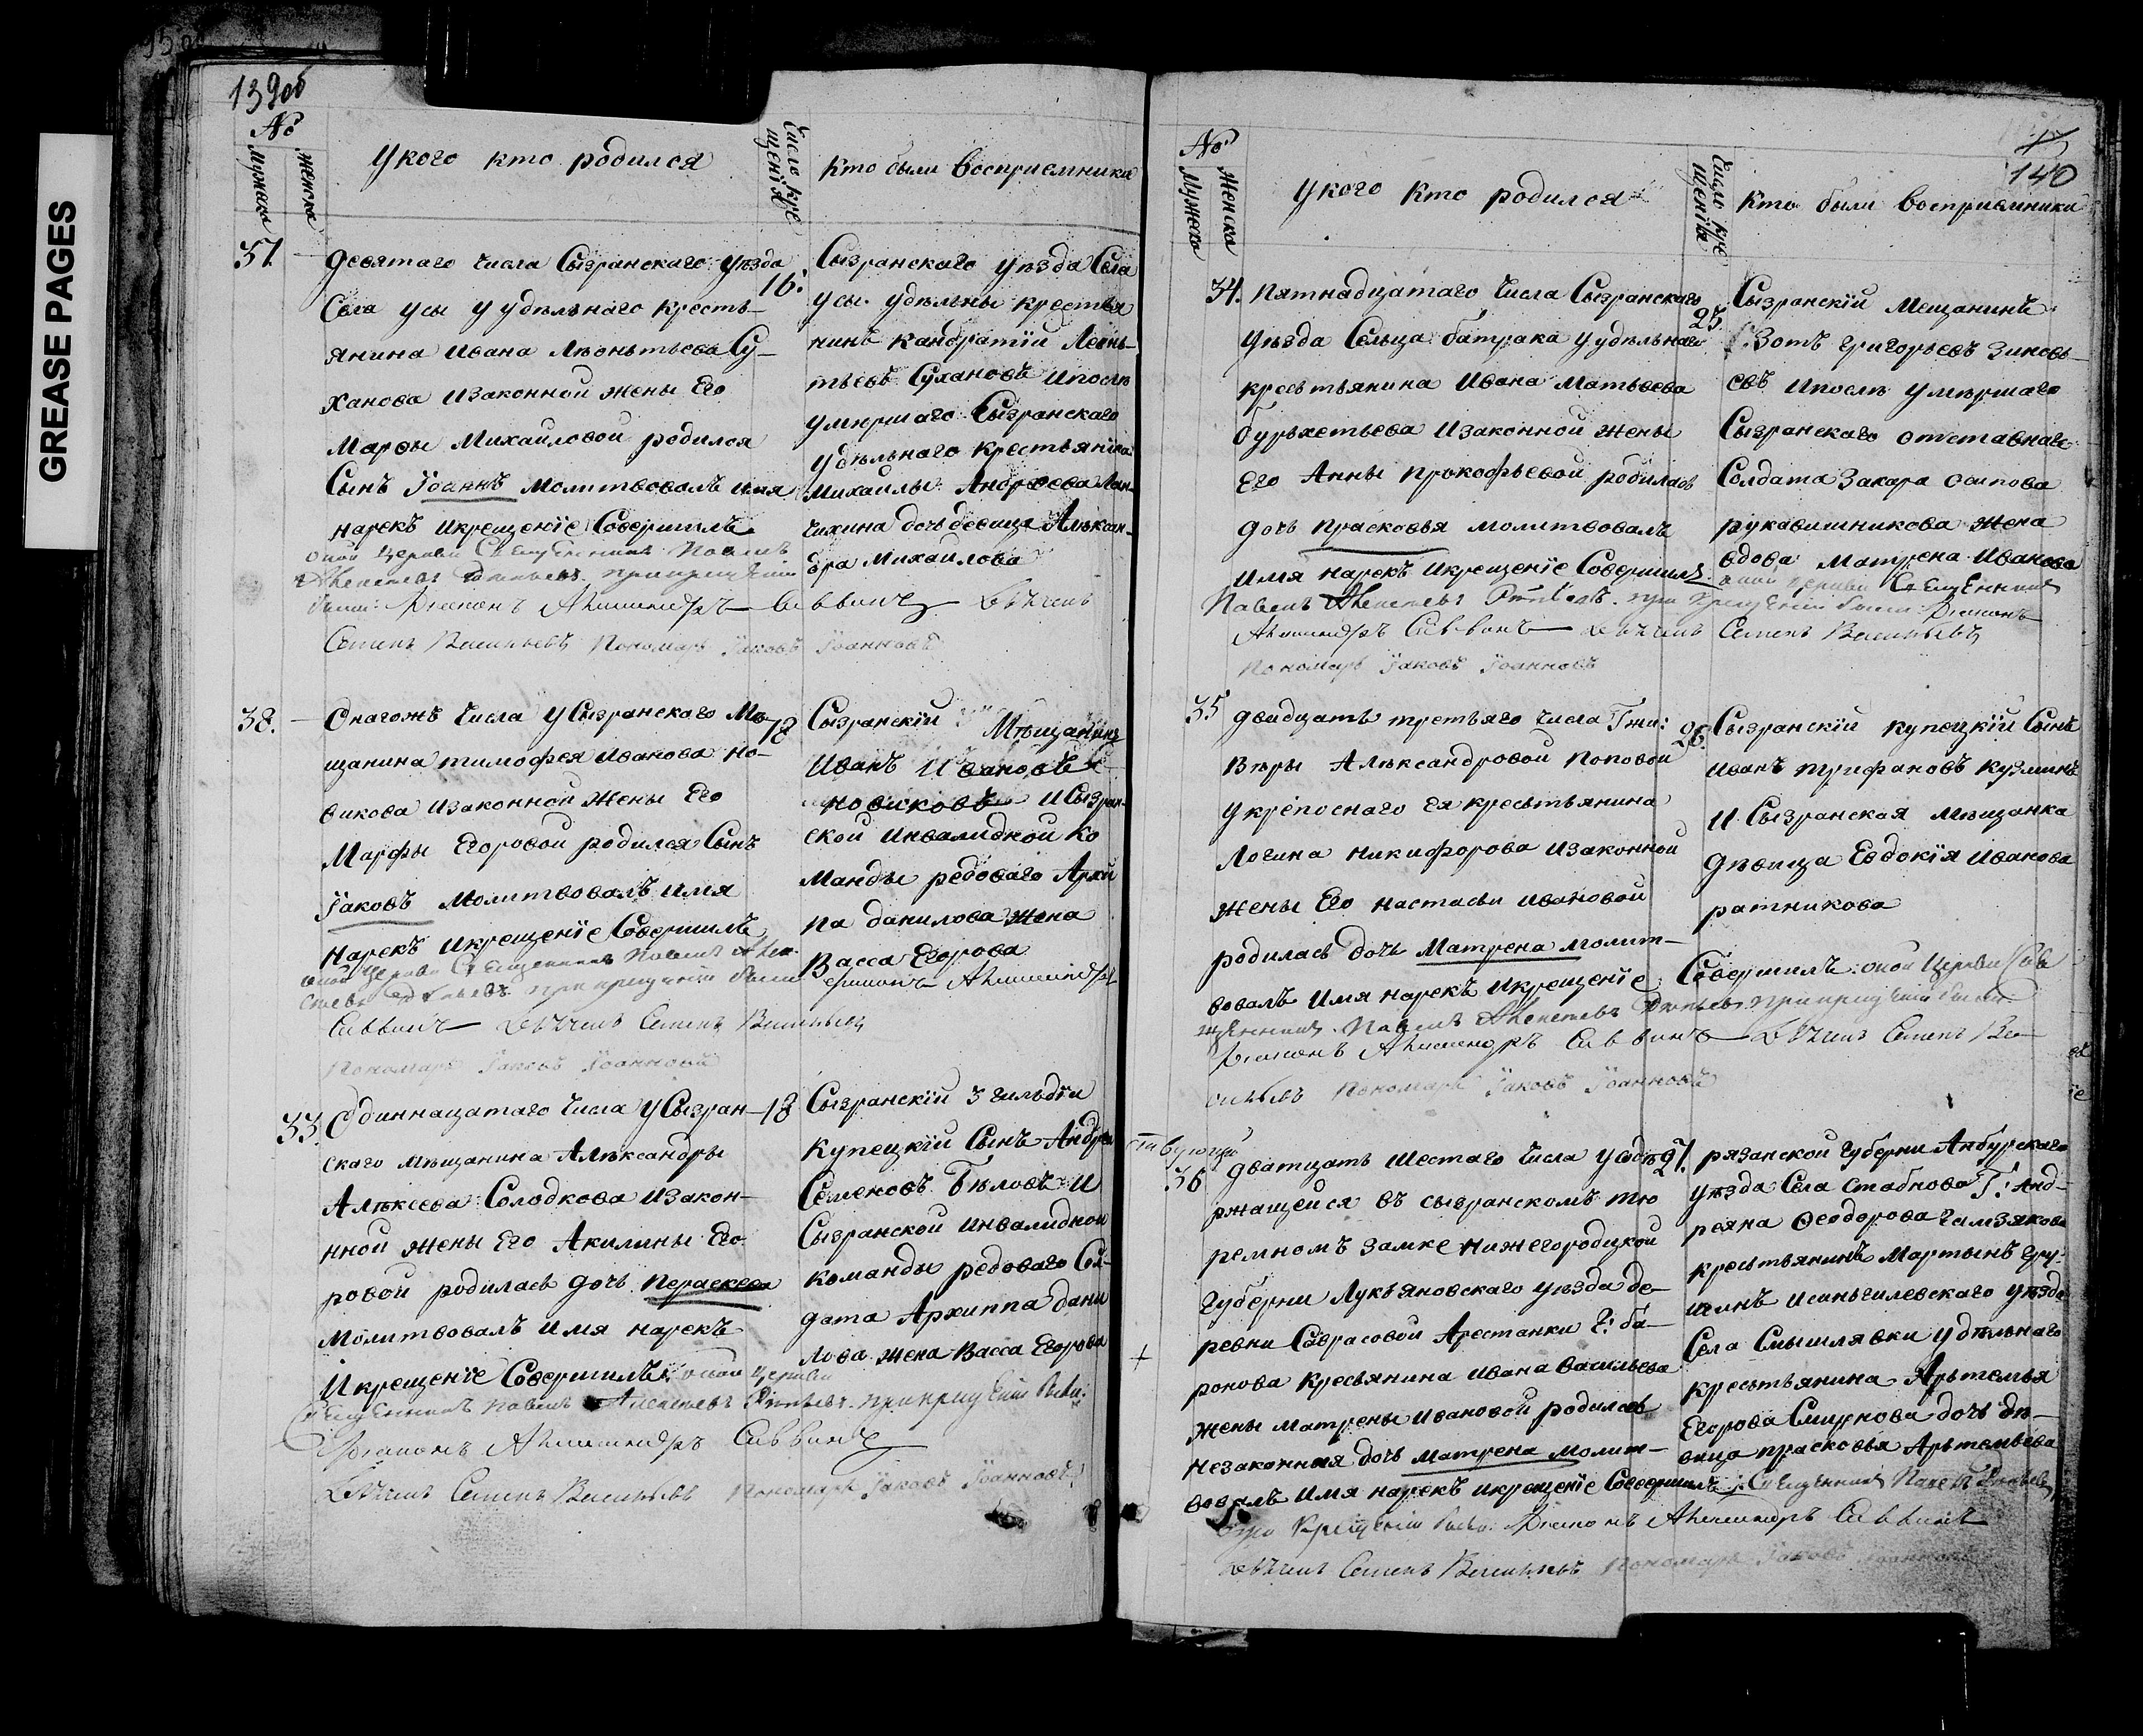 GREASE PAGES
139об
№
Мужска
Женска
У кого кто родился
Число кре
щенїя
Кто были восприемники
37.
Девятаго числа Сызранскаго уѣзда
Села Усы у удѣльнаго кресть-
янина Ивана Леонтьева Су-
ханова изаконной жены Его
Марфы Михайловой родился
Сынъ Їоаннъ молитвовалъ имя
нарекъ икрещенїе Совершилъ
оной Церкви Священникъ Павелъ
при крещенїи
были: Дїаконъ Александръ Саввинъ
Семенъ Васильевъ Пономарь Їаковъ Їоанновъ
16.
Сызранскаго уѣзда Села
Усы удѣльны крестья
нинъ Кандратїй Леонь-
тьевъ Сухановъ ипослѣ
умершаго Сызранскаго
удѣльнаго крестьянина
Михайлы Андреева
дочь девица Алѣксан-
дра Михайлова
38.
Онагожъ числа у Сызранскаго Мѣ-
щанина тимофея Иванова но-
викова изаконной жены Его
Марфы Егоровой родился Сынъ
Їаковъ молитвовалъ имя
нарекъ икрещенїе Совершилъ
оной Церкви Священникъ Павелъ
при крещенїи были
Дїаконъ Александръ
Саввинъ Семенъ Васильевъ
Пономарь Їаковъ Їоанновъ
18
Сызранскїй Мѣщанинъ
Иванъ Ивановъ
новиковъ и Сызран-
ской инвалидной ко
манды редоваго Архи
па данилова жена
Васса Егорова
33.
Одиннацатаго числа у Сызран-
скаго мѣщанина Алѣксандры
Алѣксеева Солодкова изакон-
нной жены Его Акилины Его
ровой родилась дочь Параскева
молитвовалъ имя нарекъ
икрещенїе Совершилъ: оной Церкви
Священникъ Павелъ при крещенїи были:
Дїаконъ Александръ Саввинъ
Семенъ Васильевъ Пономарь Їаковъ Їоанновъ
18
Сызранскїй 3 гильдїи
Купецкїй Сынъ Андрей
Семеновъ Бѣловъ и
Сызранской инвалидной
команды редоваго Сол-
дата Архиппа дани
лова жена Васса Егорова
140
№
Мужска
Женска
У кого кто родился
Число кре
щенїя
Кто были восприемники
34.
Пятнадцатаго числа Сызранскаго
уѣзда Сельца батрака у удѣльнаго
крестьянина Ивана Матвѣева
изаконной жены
Его Анны Прокофьевой родилась
дочь Прасковья молитвовалъ
имя нарекъ икрещенїе Совершилъ:
оной Церкви Священникъ
Павелъ при крещенїи были: Дїаконъ
Александръ Саввинъ Семенъ Васильевъ
Пономарь Їаковъ Їоанновъ
25.
Сызранскїй Мещанинъ
Зотъ Григорьевъ Зиновь-
евъ ипослѣ умѣршаго
Сызранскаго отставнаго
Солдата Захара Осипова
рукавишникова жена
вдова Матрена Иванова
35
двадцать третьяго числа Гжи:
Вѣры Алѣксандровой Поповой
укрѣпоснаго ея крестьянина
Логина никифорова изаконной
жены Его настасьи ивановой
родилась дочь Матрена молит-
вовалъ имя нарекъ икрещенїе Совершилъ: оной Церкви Свя
щенникъ Павелъ при крещенїи были
Дїаконъ Александръ Саввинъ Семенъ Ва
сильевъ Пономарь Їаковъ Їоанновъ
26.
Сызранскїй купецкїй Сынъ
иванъ трифановъ кузминъ
и Сызранская мѣщанка
дѣвица Евдокїя Иванова
ратникова
36
дватцать шестаго числа у Содѣ
ржащейся въ сызранскомъ тю
ремномъ замке нижегородцкой
губерни Лукьяновскаго уѣзда де-
ревни Саврасовой Арестанки Г: ба-
ронова Кресьянина ивана васильева
жены матрены ивановой родилась
незаконная дочь матрена молит-
вовалъ имя нарекъ икрещенїе Совершилъ: Священникъ Павелъ
при крещенїи были: Дїаконъ Александръ Саввинъ
Семенъ Васильевъ Пономарь Їаковъ Їоанновъ
27.
рязанской губерни
уѣзда Села Г: Анд-
реяна Ѳеодорова
крестьянинъ Мартынъ Гру-
шинъ исиньгилевскаго уѣзда
Села Смышлявки удѣльнаго
крестьянина Арьтемья
Егорова Смирнова дочь дѣ-
вица прасковья Арьтемьева